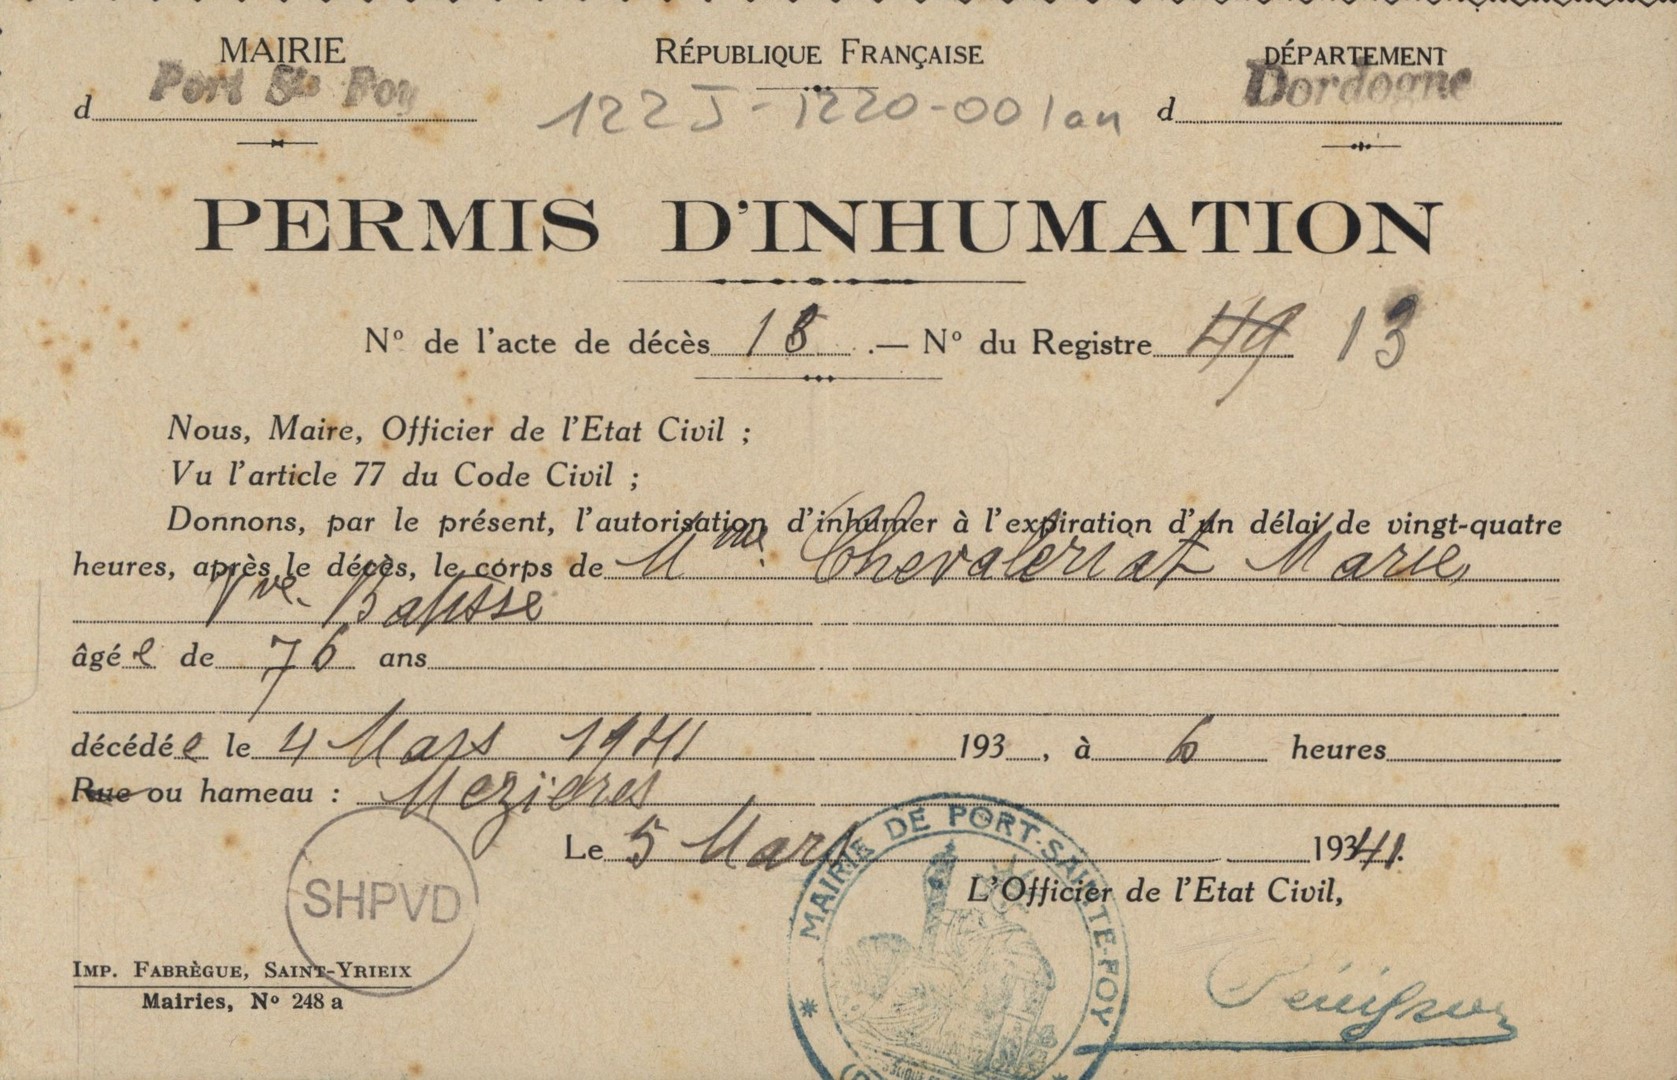 MAIRIE
d Port Ste Foy
RÉPUBLIQUE FRANÇAISE
122J-1220-001an
DÉPARTEMENT
d Dordogne
PERMIS D'INHUMATION
Nº de l'acte de décès 13 .— Nº du Registre 49 13
Nous, Maire, Officier de l'Etat Civil ;
Vu l'article 77 du Code Civil ;
Donnons, par le présent, l'autorisation d'inhumer à l'expiration d'un délai de vingt-quatre
heures, après le décès, le corps de Mme. Chevaleriat Marie,
Vve. Batisse
âgée de 76 ans
décédée le 4 Mars 1941 193 , à 6 heures
Rue ou hameau : Mezières
Le 5 Mars 19341.
MAIRIE DE PORT-SAINTE-FOY
L'Officier de l'Etat Civil,
SHPVD
IMP. FABRÈGUE, SAINT-YRIEIX
Mairies, Nº 248 a